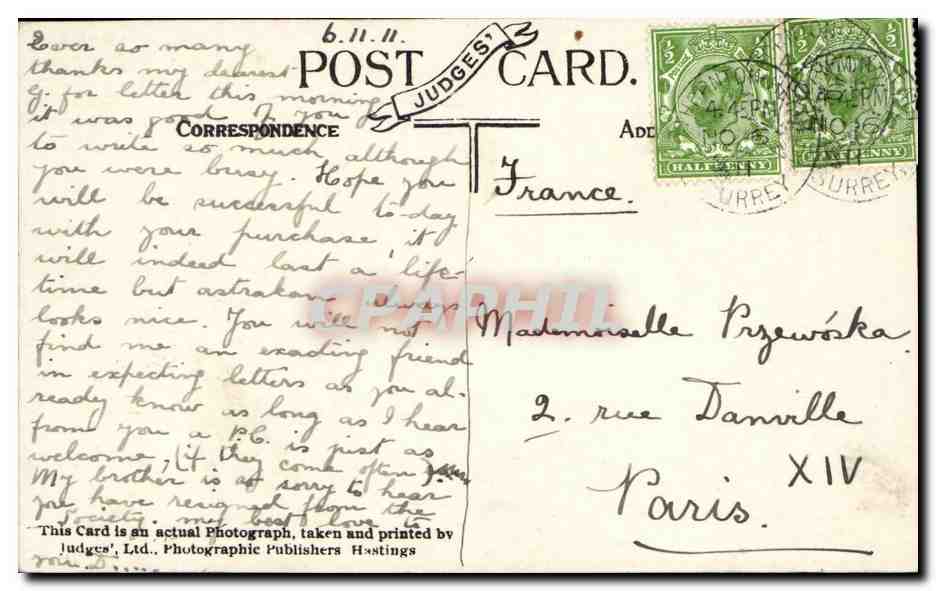 6.11.11.
POST CARD.
JUDGES'
CORRESPONDENCE
ADD
Ever so many
thanks my dearest
G. for letter this morning
it was good of you
to write so much, although
you were busy. Hope you
will be successful to-day
with your purchase, it
will indeed last a 'life-
time but astrakan always
looks nice. You will not
find me an exacting friend
in expecting letters as you al-
ready know as long as I hear
from you a P.C. is just as
welcome, (if they come often)
My brother is so sorry to hear
you have resigned from the
Society. my best love to
you. D.....
This Card is an actual Photograph, taken and printed by
Judges', Ltd., Photographic Publishers Hastings
France.
Mademoiselle Przewóska.
2. rue Danville
XIV
Paris.
½ ½
HALF PENNY
4.45PM
NO 6
11
SURREY
½ ½
PENNY
NO 6
11
SURREY
CPAPHIL